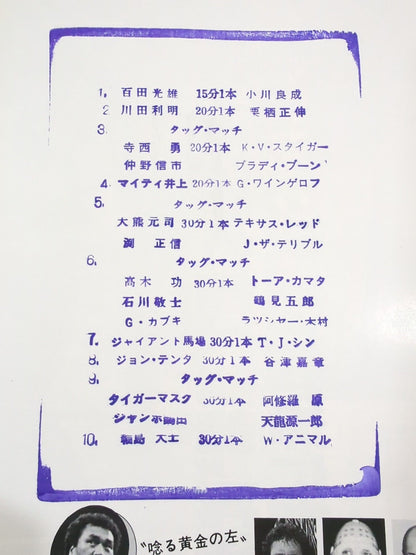 1. 百田光雄 15分1本 小川良成
2 川田利明 20分1本 栗栖正伸
3. タッグ・マッチ
寺西 勇 20分1本 K・V・スタイガー
仲野信市 ブラディ・ブーン
4. マイティ井上 20分1本 G・ワインゲロフ
5. タッグ・マッチ
大熊元司 30分1本 テキサス・レッド
渕 正信 J・ザ・テリブル
6. タッグ・マッチ
高木 功 30分1本 トーア・カマタ
石川敬士 鶴見五郎
G・カブキ ラッシャー・木村
7. ジャイアント馬場 30分1本 T・J・シン
8. ジョン・テンタ 30分1本 谷津嘉章
9. タッグ・マッチ
タイガーマスク 30分1本 阿修羅 原
ジャンボ鶴田 天龍源一郎
10. 輪島 大士 30分1本 W・アニマル
〝唸る黄金の左〟